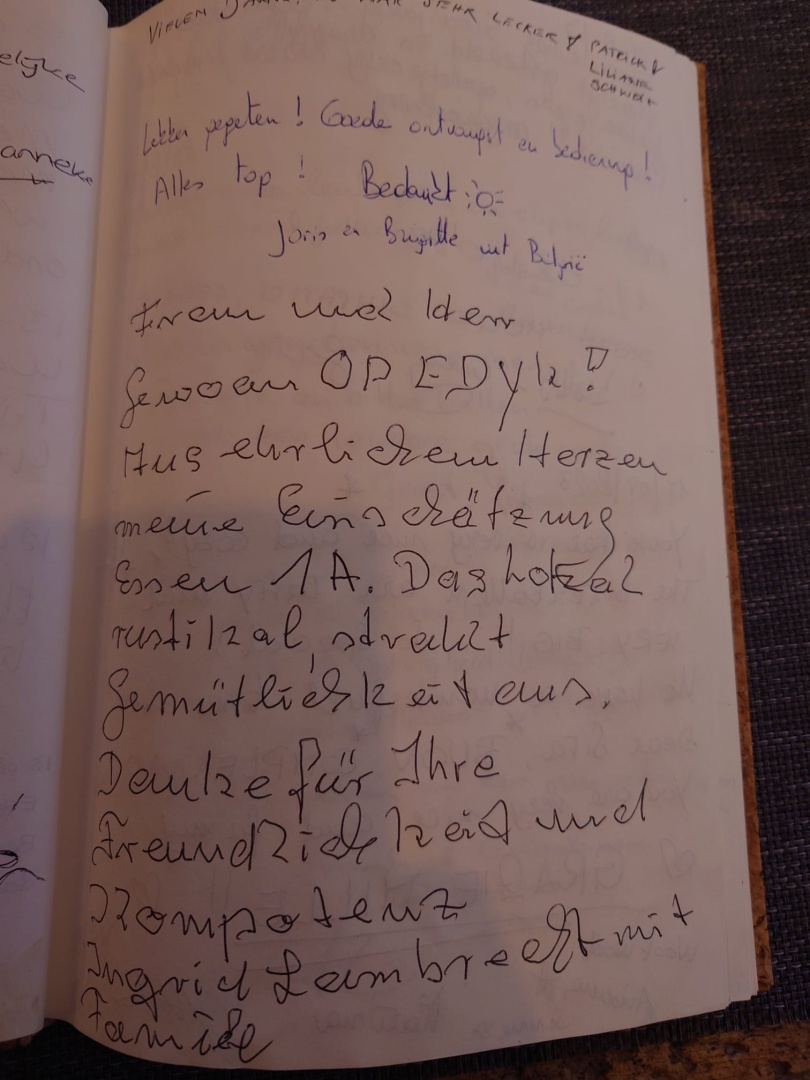 elijke
anneke
VIELEN WAR SEHR LECKER PATRICK &
LILIANE
Lekker gegeten ! Goede ontvangst en bediening !
Alles top ! Bedankt
Joris en Brigitte uit België
Frau und Herr
Gewoan OP EDYK !
Aus ehrlichem Herzen
meine Einschätzung
Essen 1A. Das Lokal
rustikal, strahlt
Gemütlichkeit aus.
Danke für Ihre
Freundlichkeit und
Kompotenz
Ingrid Lambrecht mit
Familie